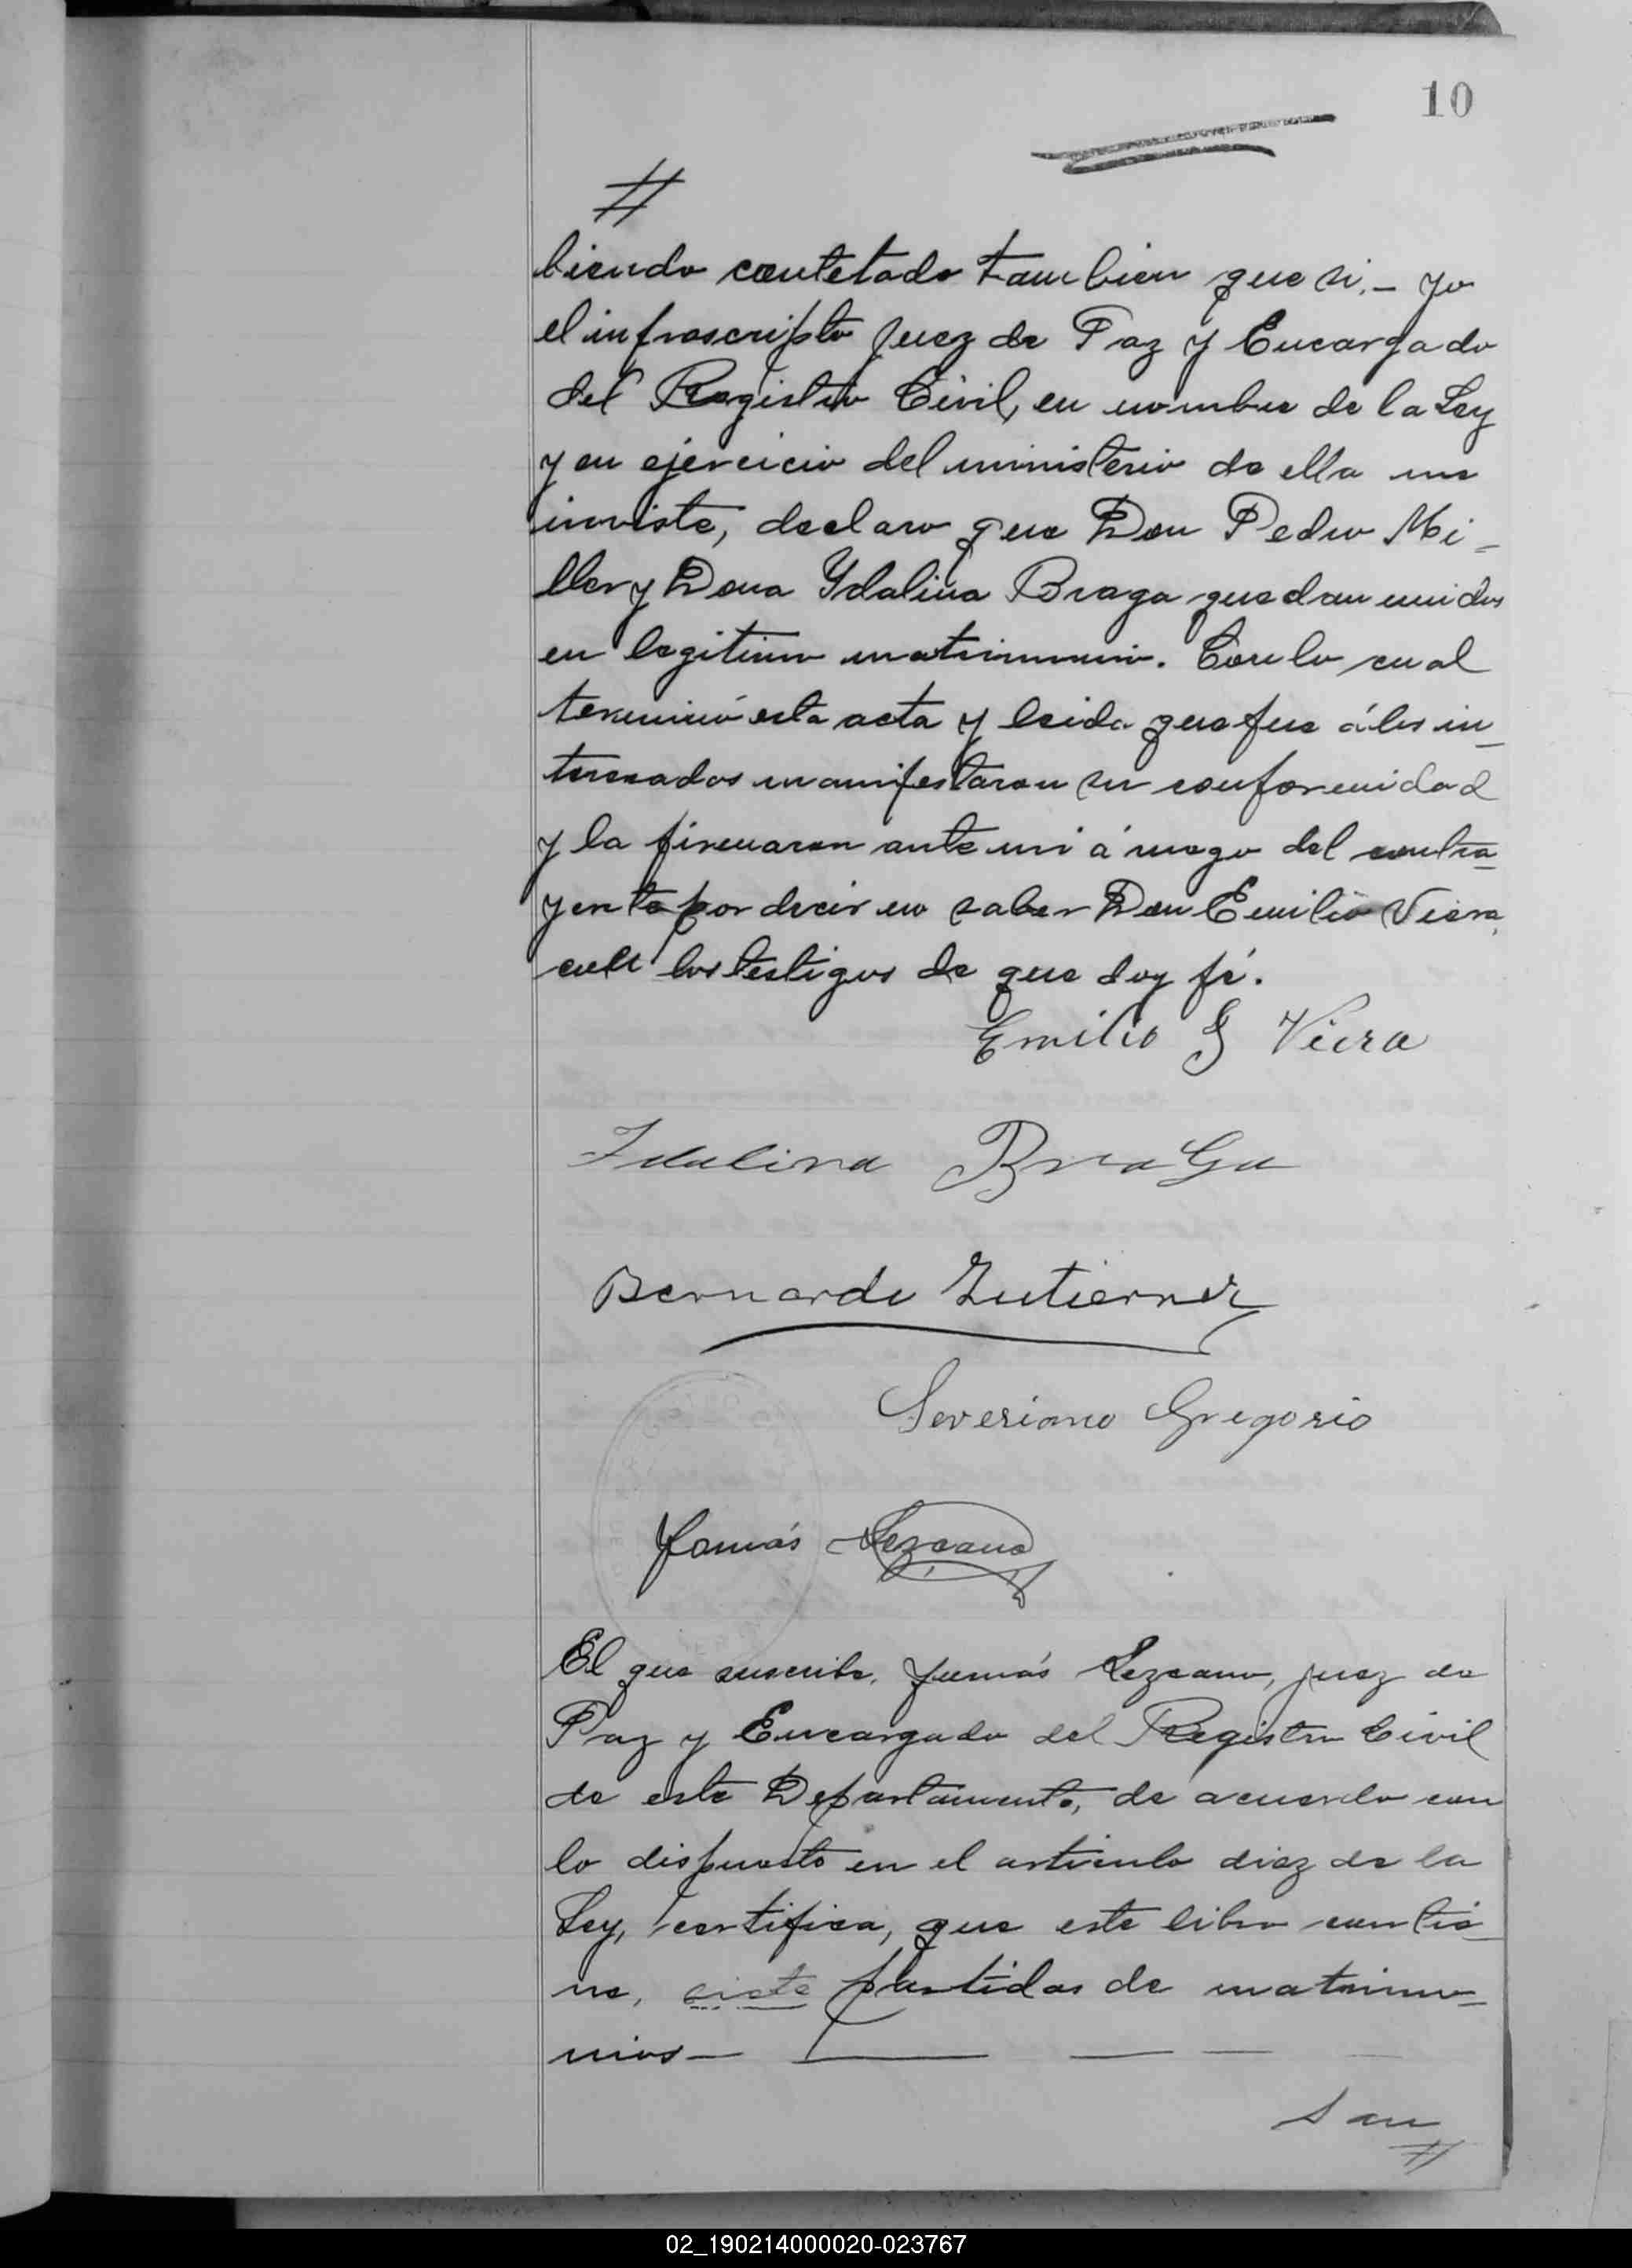 10
#
biendo contetado tambien que si.- yo
el infrascripto Juez de Paz y Encargado
del Registro Civil, en nombre de la Ley
y en ejercicio del ministerio de ella me
inviste, declaro que Don Pedro Mi-
ller y Dona Ydalina Braga quedan unidos
en legitimo matrimonio. Con lo cual
terminó esta acta y leida que fue á los in-
teresados manifestaron su conformidad
y la firmaron ante mi á ruego del contra-
yente por decir no saber Don Emilio Viera,
los testigos de que doy fé.
Emilio G Viera
Idalina BraGa
Bernardo Gutierrez
Severiano Gregorio
Tomás Lezcano
El que suscribe, Tomás Lezcano, juez de
Paz y Encargado del Registro Civil
de este Departamento, de acuerdo con
lo dispuesto en el articulo diez de la
Ley, certifica, que este libro contie-
ne, siete partidas de matrimo-
nios—
San
#
02_190214000020-023767